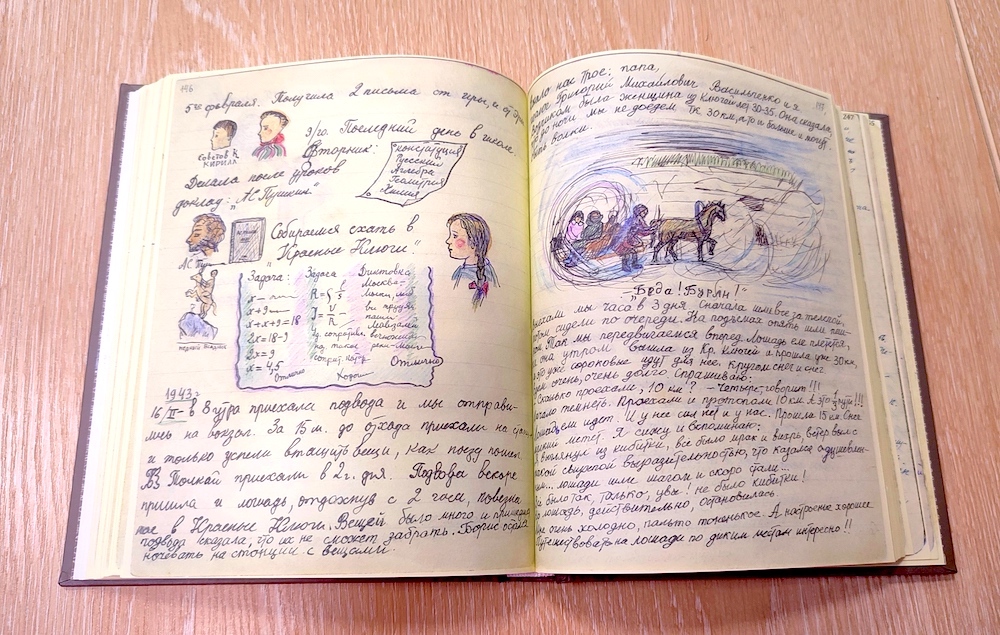 146
5го февраля. Получила 2 письма от Иры, и от
Советов К.
КИРИЛЛ
9/го. Последний день в школе.
Вторник:
Конституция
Русский
Алгебра
Геометрия
Химия
Делала после уроков
доклад: „А.С. Пушкин"
А.С. Пуш
Собираемся ехать в
„Красные Ключи".
Медный всадник
Задача:
x —
x+9 —
x+x+9=18
2x=18-9
2x=9
x=4,5
Отлично
Задача
R=
J=V/R
Хорош
Диктовка
Москва-
Отлично
1943г.
16/II - в 8 утра приехала подвода и мы отправи-
лись на вокзал. За 15 м. до отхода приехали на стан
и только успели втащить вещи, как поезд пошел
В Толкай приехали в 2 г. дня. Подвода вскоре
пришла и лошадь, отдохнув с 2 часа, повезла
нас в Красные Ключи. Вещей было много и
подвода сказала, что их не сможет забрать. Борис остался
ночевать на станции с вещами.
147
нас трое: папа,
Григорий Михайлович Васильченко и я
была женщина из Ключей лет 30-35. Она сказала,
до ночи мы не доедем т.к. 30 км, а то и больше и могут
волки.
— „Беда! Буран!"
мы часа в 3 дня. Сначала шли все за телегой,
сидели по очереди. На подъемах опять шли пеш-
Так мы передвигаемся вперед. Лошадь еле плетется,
она утром вышла из Кр. Ключей и прошла уже 30 км,
это уже сороковые идут для нее. Кругом снег и снег
очень, очень долго. Спрашиваю:
Сколько проехали, 10 км? – Четыре, говорит!!!
темнеть. Проехали и протопали 10 км. А это 1/3 пути!!!
идет. И у нее сил нет и у нас. Прошли 15 км. Снег
метет. Я сижу и вспоминаю:
Я выглянул из кибитки, все было мрак и вихрь. Ветер выл с
свирепой выразительностью, что казался одушевлен-
лошади шли шагом и скоро стали...
было так, только, увы! не было кибитки!
лошадь, действительно, остановилась.
очень холодно, пальто тоненькое. А настроение хорошее
Путешествовать на лошади по диким местам интересно!!
247